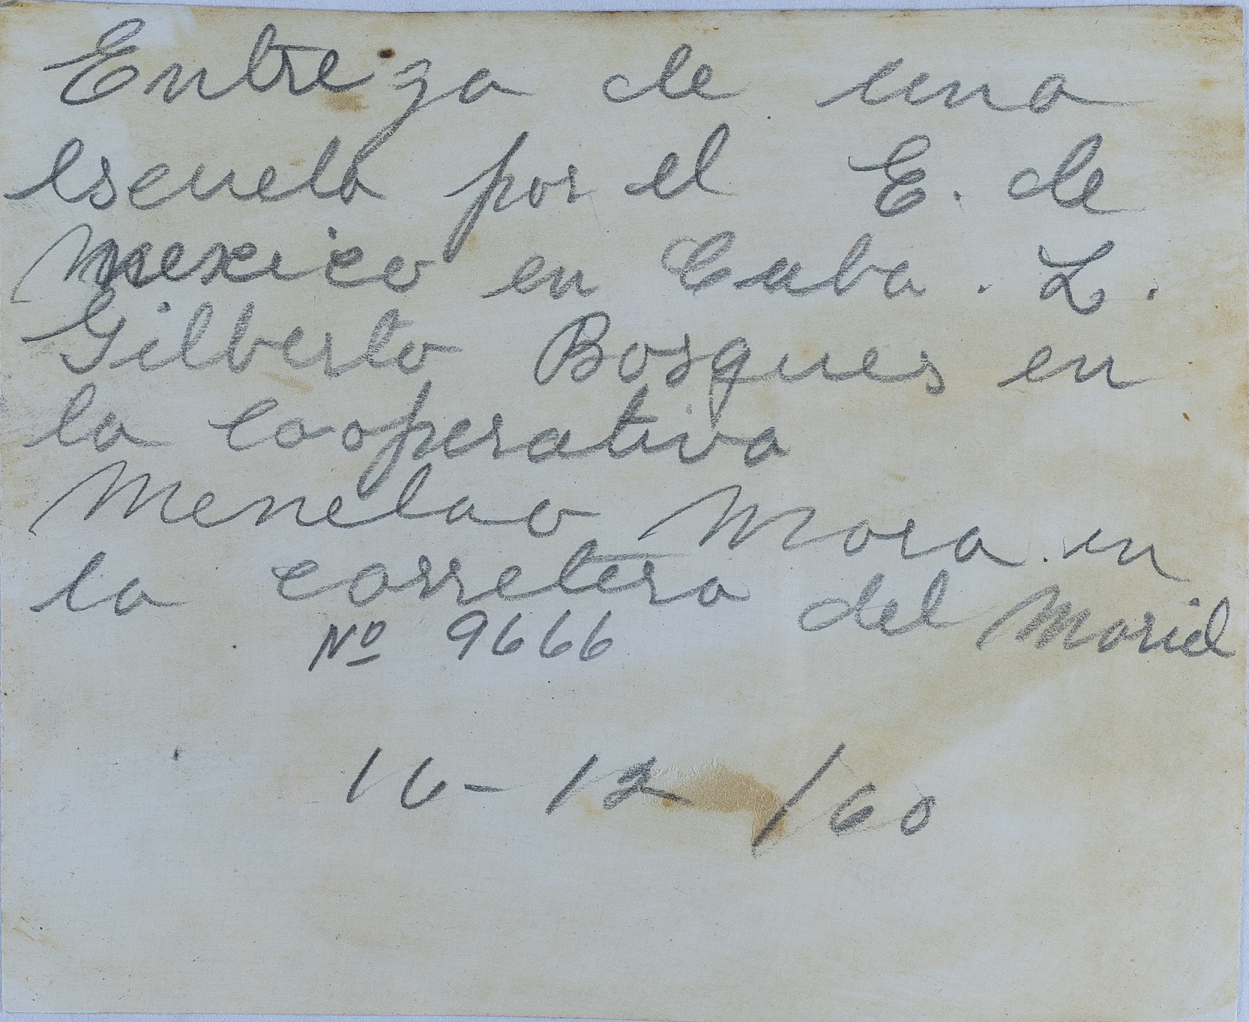 Entrega de una
escuela por el E. de
Mexico en Cuba. L.
Gilberto Bosques en
la cooperativa
Menelao Mora en
la carretera del Mariel
Nº 9666
16-12/60